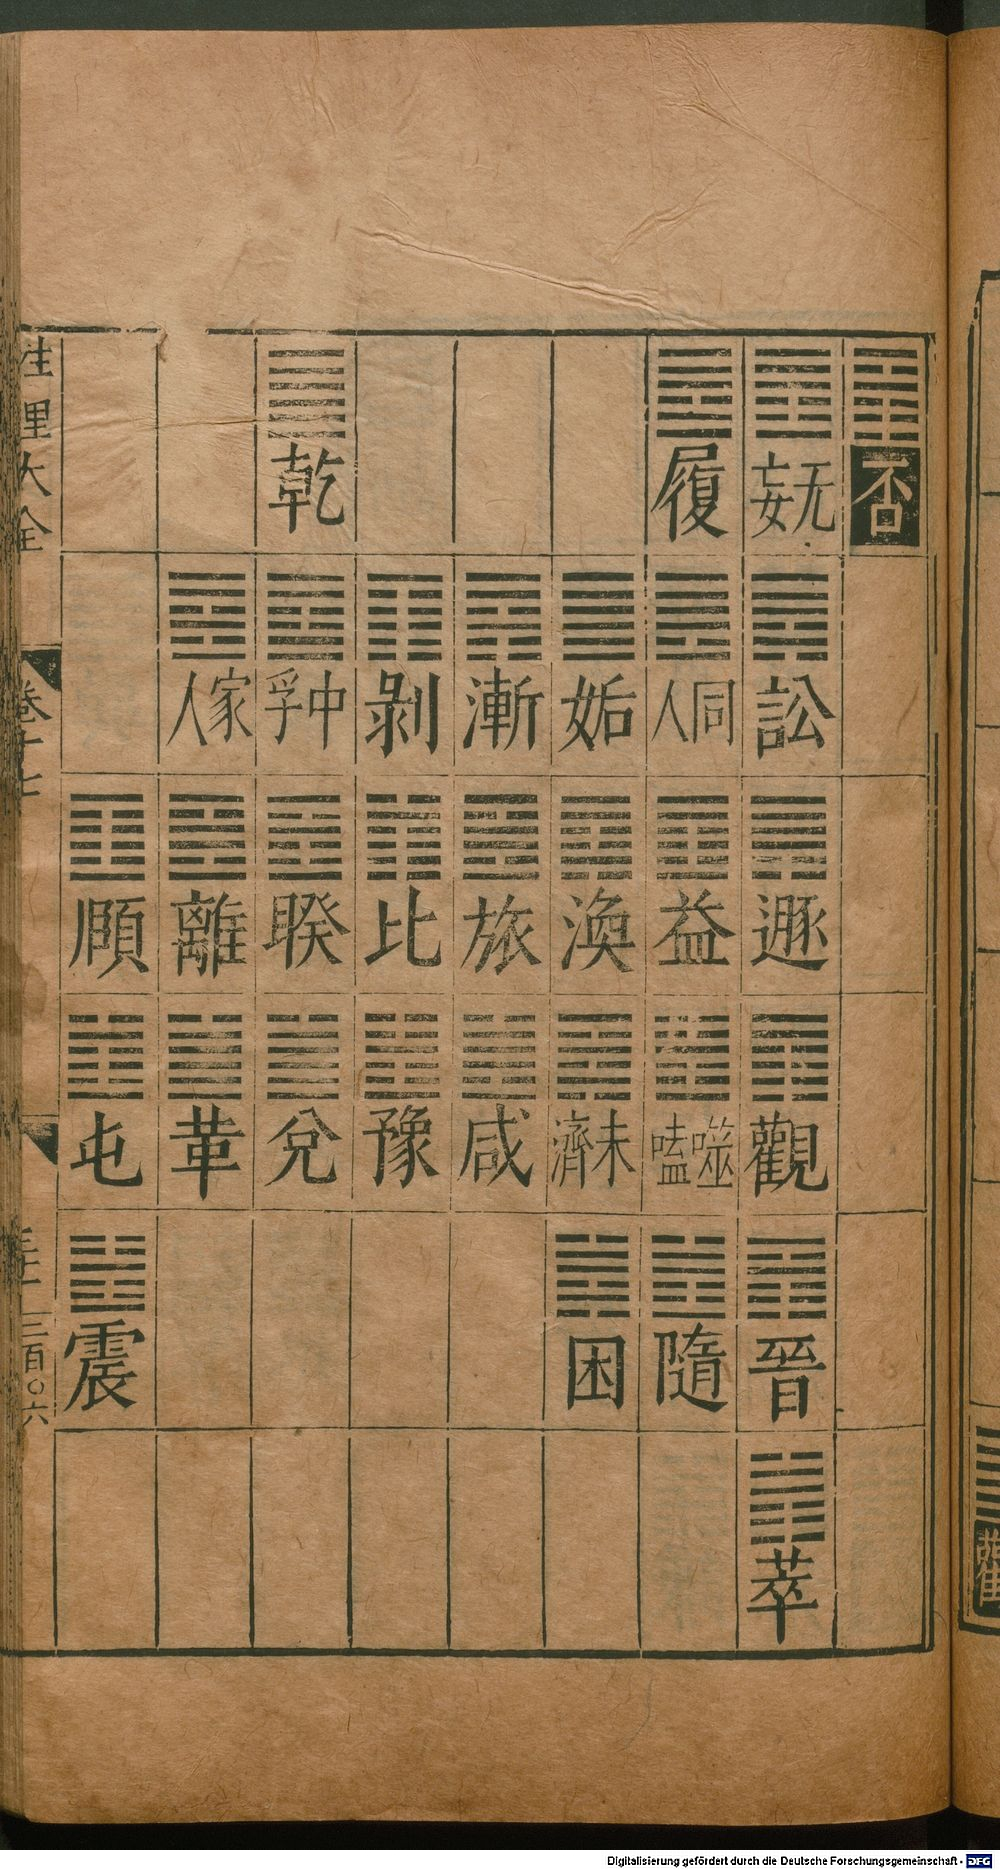 否
无妄
訟
遯
觀
晉
萃
履
同人
益
噬嗑
隨
姤
渙
未濟
困
漸
旅
咸
剝
比
豫
乾
中孚
睽
兌
家人
離
革
頤
屯
震
性理大全
卷十七
三百〇六
Digitalisierung gefördert durch die Deutsche Forschungsgemeinschaft - DFG